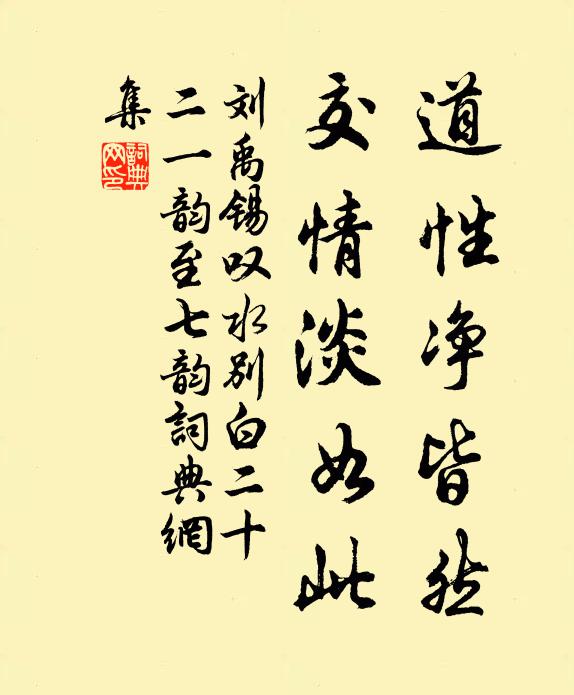 道性净皆然
交情淡如此
刘禹锡叹水别白二十
二一韵至七韵词典網
集
詞典
网印